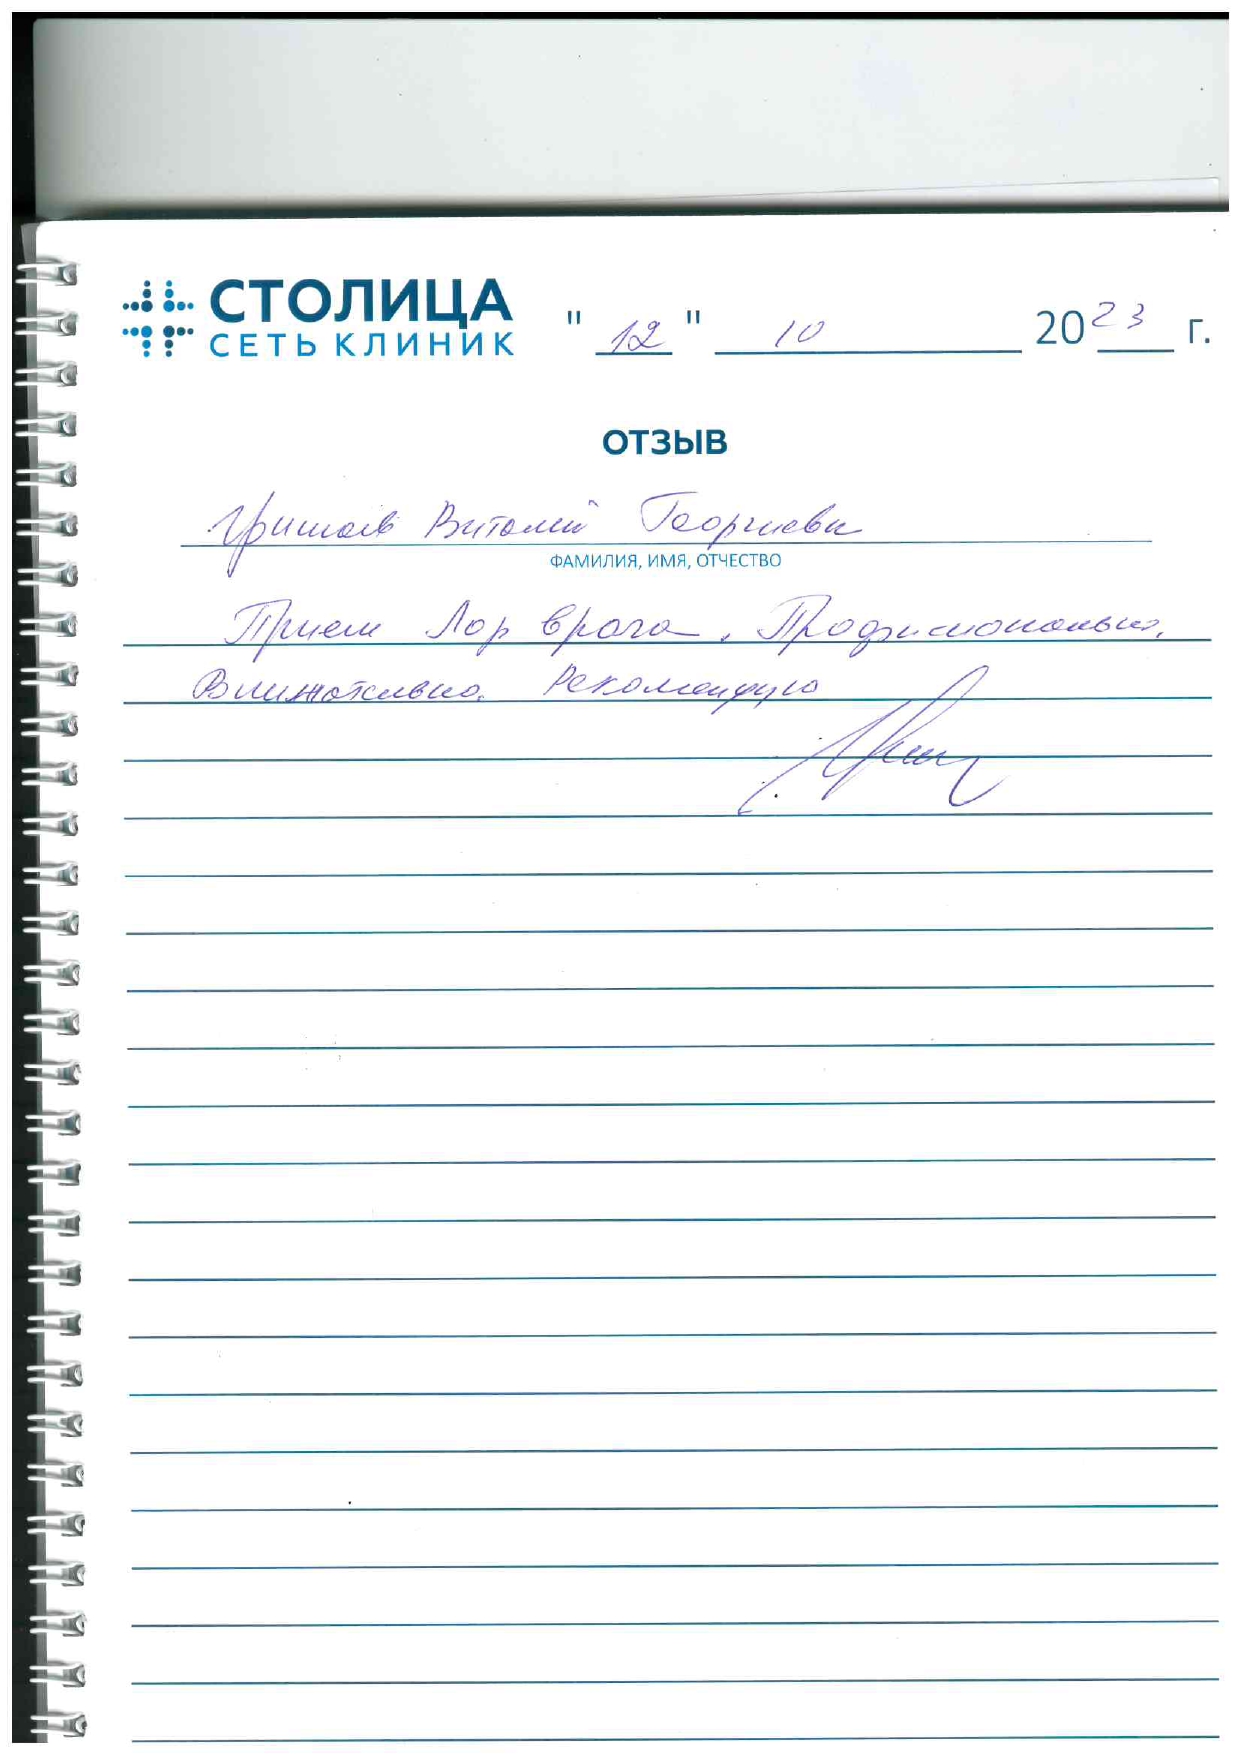 СТОЛИЦА
СЕТЬ КЛИНИК
"12" 10 2023 г.
ОТЗЫВ
Гришаев Виталий Георгиеви
ФАМИЛИЯ, ИМЯ, ОТЧЕСТВО
Прием Лор врача. Профисионально,
Внимательно. Рекомендую